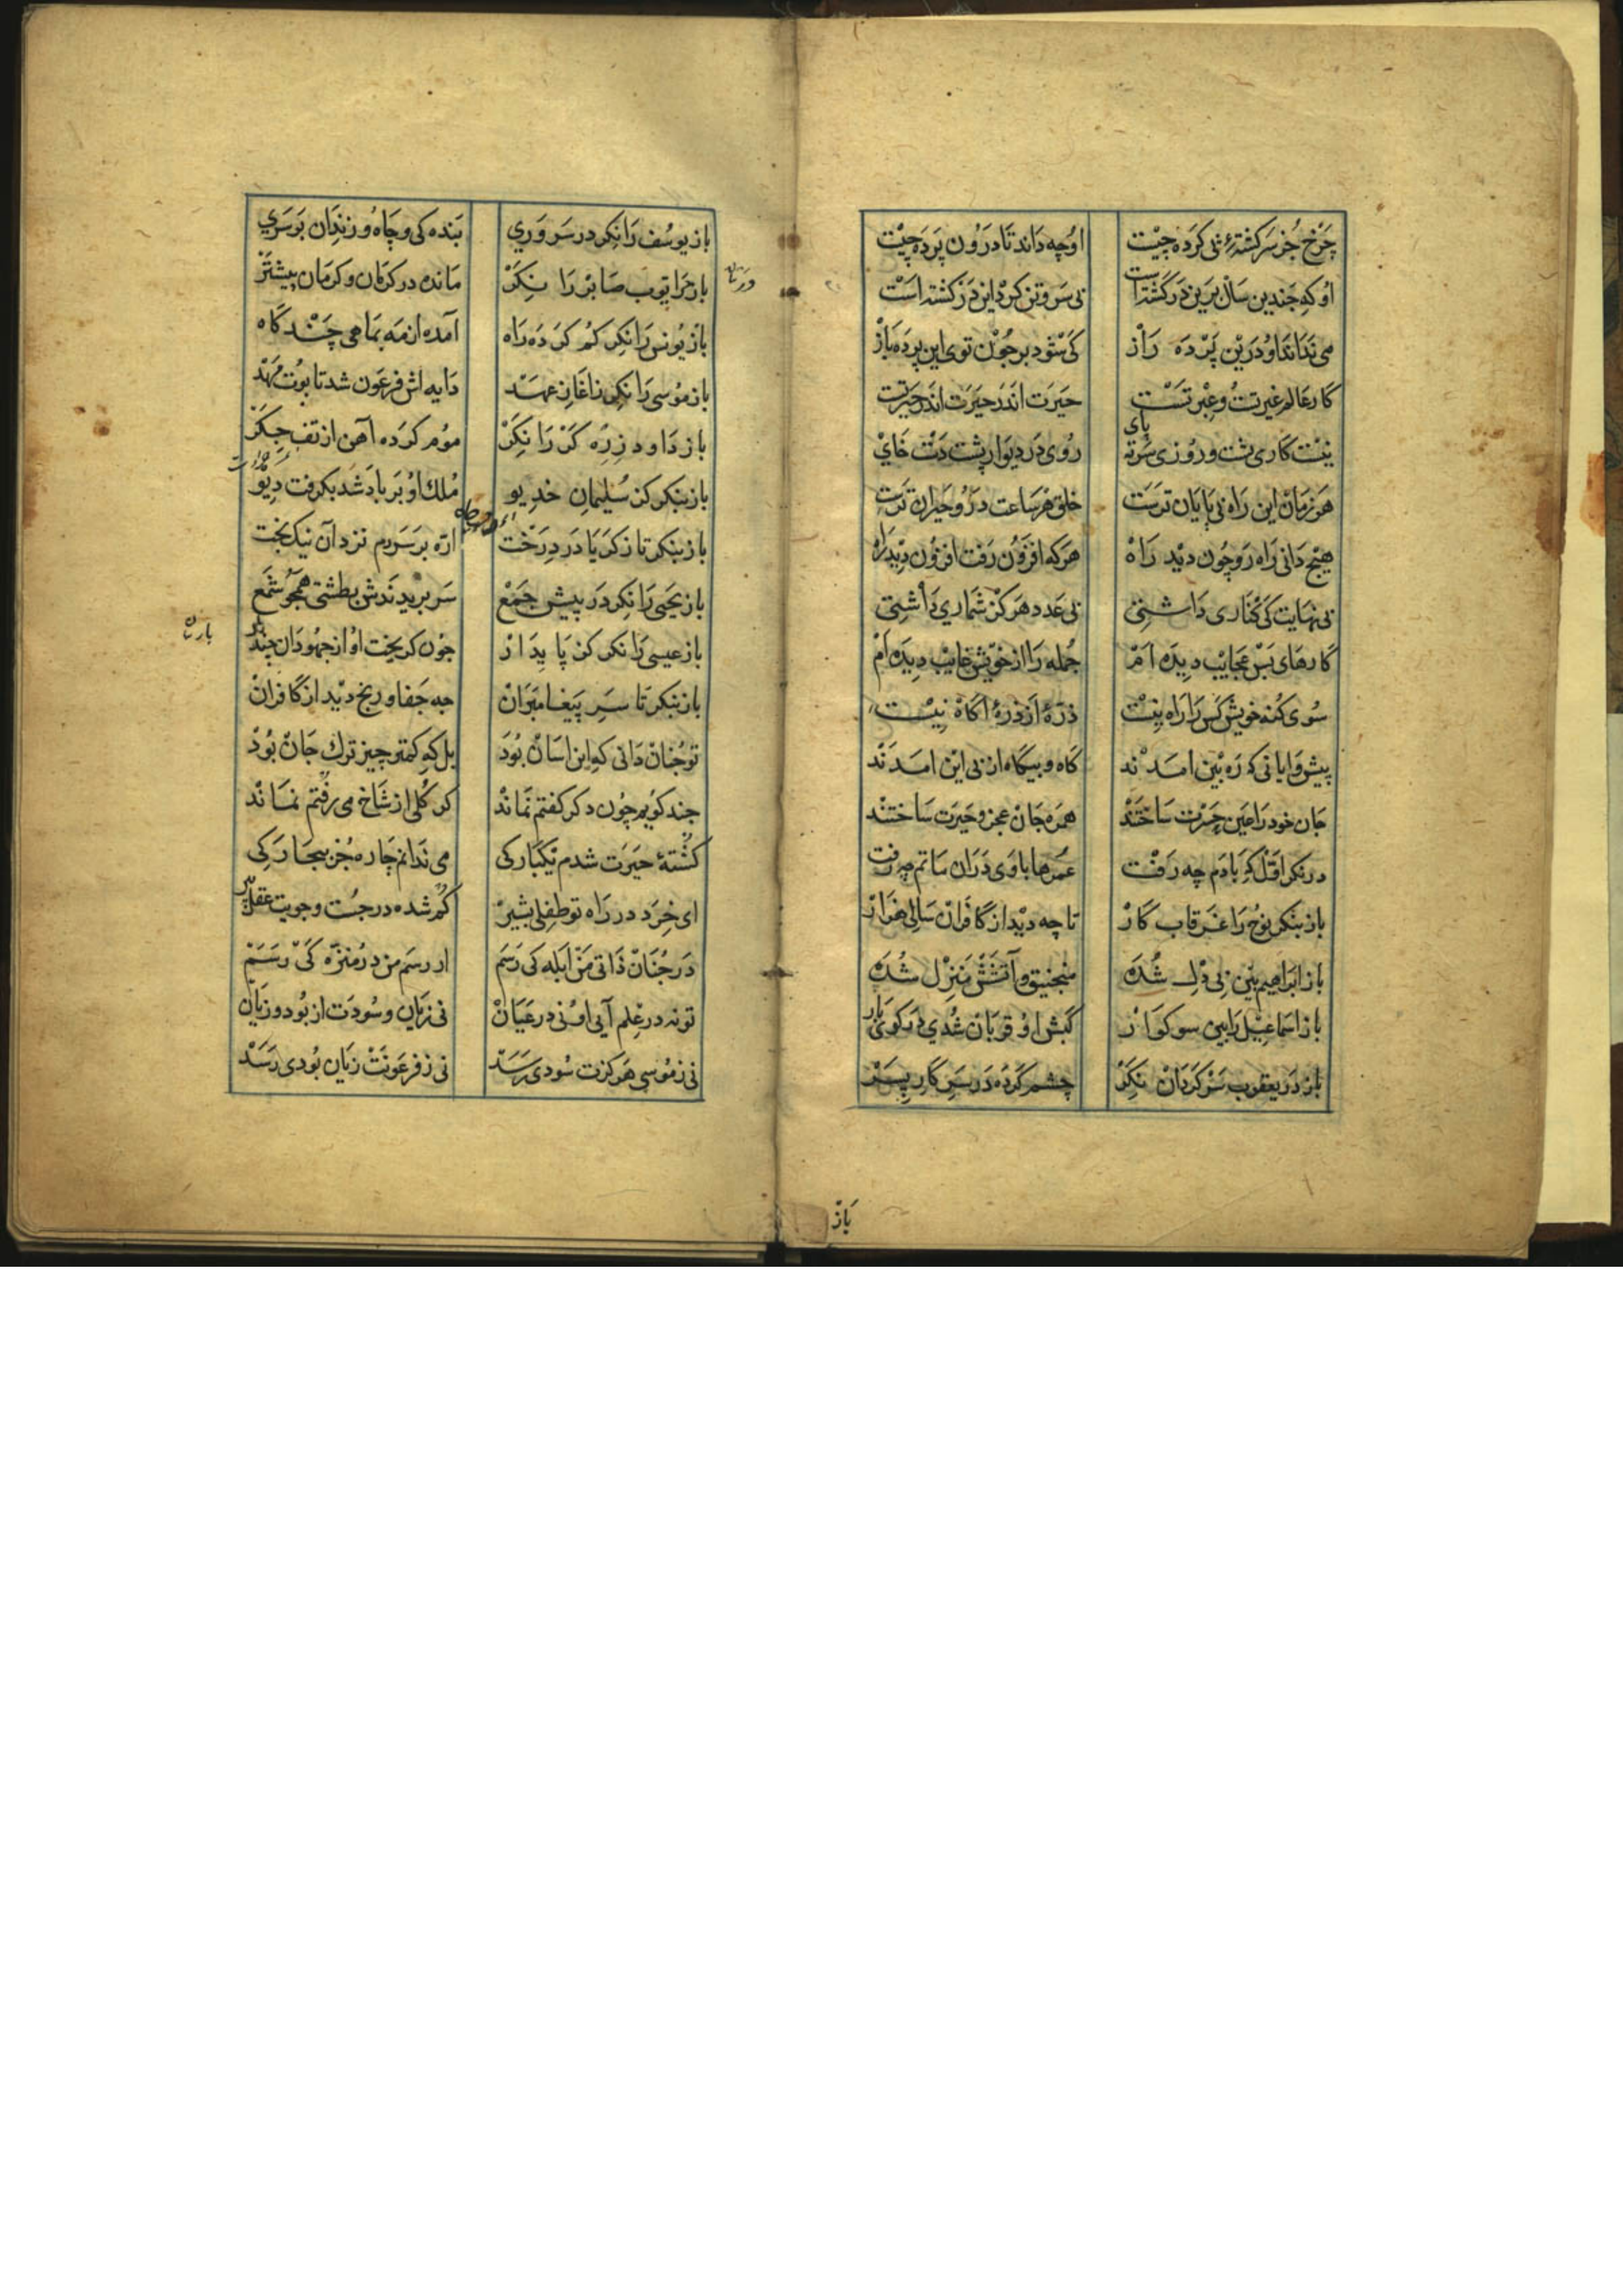 چرخ جز سرکشتهٔ بی کرده چیست اوچه داند تا درون پرده چیست
او که چندین سال بر این در کشته است بی سر و تن کرد این در کشته است
می نداند او درین پرده راز کی شود بر چون تویی این پرده باز
کار عالم غیرتست و عبرتست حیرت اندر حیرت اندر حیرتست
نیست کاری پشت و روزی سرنه پای روی در دیوار پشت دست خای
هر زمان این راه بی پایان ترست خلق هر ساعت درو حیران ترست
هیچ دانی راه رو چون دید راه هر که افزون رفت افزون دید راه
بی نهایت کی کناری داشتی بی عدد هرکز شماری داشتی
کارهای بس عجایب دیده ام جمله را از خویش غایب دیده ام
سوی کنه خویش کس را راه نیست ذرهٔ از ذرهٔ اکاه نیست
پیش وایانی که ره بین امدند کاه و بیکاه از پی این امدند
جان خود را عین حیرت ساختند همره جان عجز و حیرت ساختند
در نکر اول که با ادم چه رفت عمرها با وی دران ماتم چه رفت
باز بنکر نوح را غرقاب کار تا چه دید از کافران سالی هزار
باز ابراهیم بین بی دل شده منجنیق و آتشش منزل شده
باز اسماعیل را بین سوکوار کبش او قربان شدی در کوی یار
باز در یعقوب سرکردان نکر چشم کرده در سر کار پسر
باز
باز یوسف را نکر در سروری بنده کی و چاه و زندان بر سری
باز مر ایوب صابر را نکر مانده در کرمان و کرمان پیشتر
باز یونس را نکر کم کرده راه آمده از مه بماهی چند کاه
باز موسی را نکر زاغاز عهد دایه اش فرعون شد تابوت مهد
باز داود زره کر را نکر موم کرده آهن از تف جکر
باز بنکر کز سلیمان خدیو ملک او بر باد شد بکرفت دیو
باز بنکر تا زکریا در درخت اره بر سر دم نزد آن نیک بخت
باز یحیی را نکر در پیش جمع سر بریدندش بطشتی همچو شمع
باز عیسی را نکر کز پای دار چون کریخت او از جهودان چند بار
باز بنکر تا سر پیغامبران چه جفا و رنج دید از کافران
تو چنان دانی که این اسان بود بل که کمتر چیز ترک جان بود
چند کویم چون دکر کفتم نماند کر کلی از شاخ می رفتم نماند
کشتهٔ حیرت شدم یکبارکی می ندانم چاره جز بیچارکی
ای خرد در راه تو طفلی بشیر کم شده در جست و جویت عقل پیر
در چنان ذاتی من ابله کی رسم ار رسم من در منزه کی رسم
تو نه در علم آیی او نی در عیان نی زیان و سودت از بود و زیان
نی ز موسی هرکزت سودی رسد نی ز فرعونت زیان بودی رسد